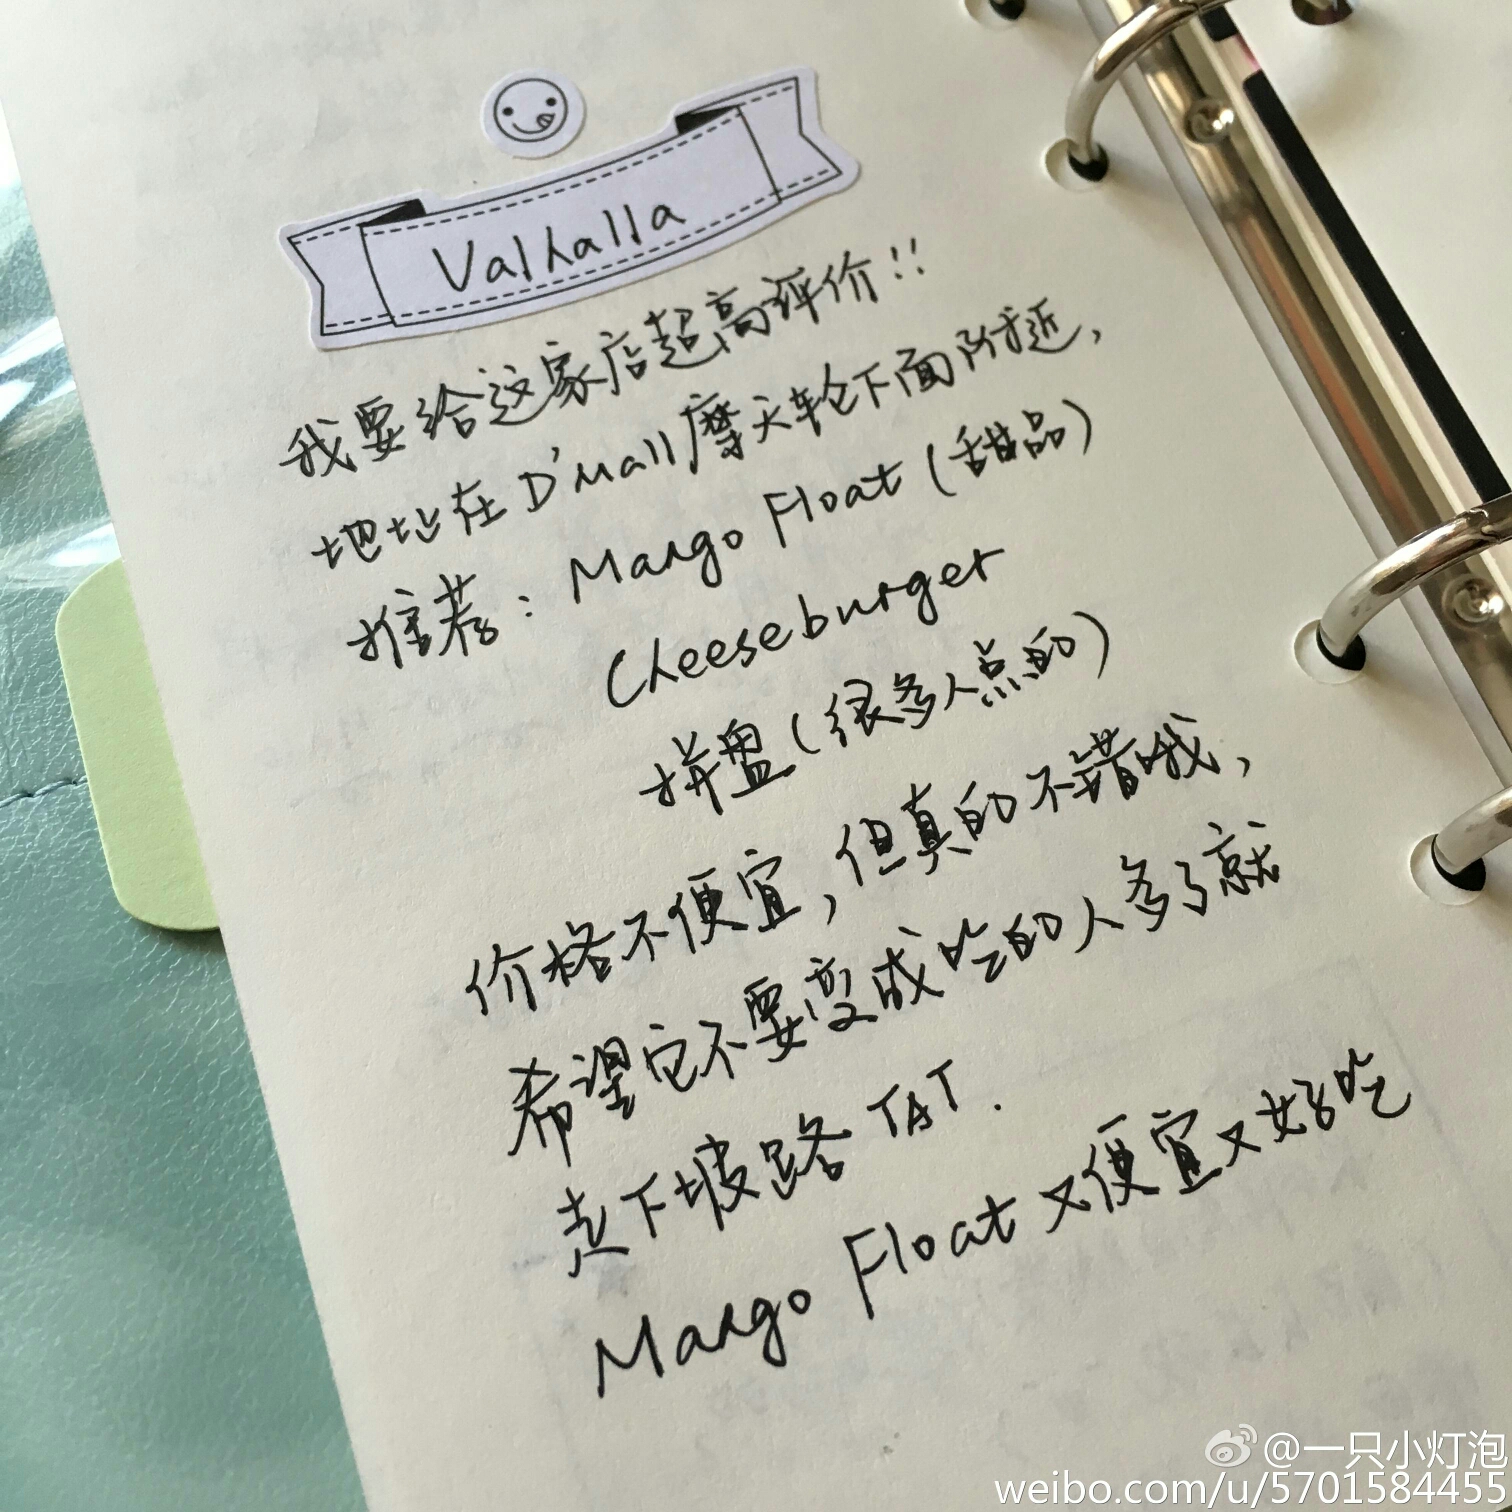 Valhalla
我要给这家店超高评价!!
地址在D'Mall摩天轮下面附近,
推荐: Mango Float (甜品)
Cheeseburger
拼盘(很多人点的)
价格不便宜,但真的不错哦,
希望它不要变成吃的人多了就
走下坡路TAT.
Mango Float又便宜又好吃
@一只小灯泡
weibo.com/u/5701584455